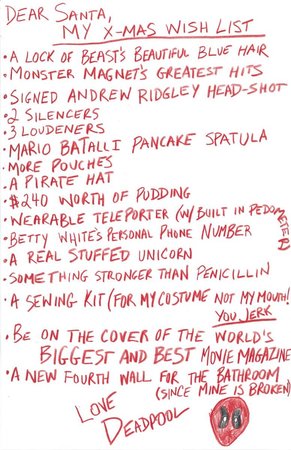 DEAR SANTA,
MY X-MAS WISH LIST
• A LOCK OF BEAST'S BEAUTIFUL BLUE HAIR
• MONSTER MAGNET'S GREATEST HITS
• SIGNED ANDREW RIDGLEY HEAD-SHOT
• 2 SILENCERS
• 3 LOUDENERS
• MARIO BATALLI PANCAKE SPATULA
• MORE POUCHES
• A PIRATE HAT
• $240 WORTH OF PUDDING
• WEARABLE TELEPORTER (W/ BUILT IN PEDOMETER)
• BETTY WHITE'S PERSONAL PHONE NUMBER
• A REAL STUFFED UNICORN
• SOMETHING STRONGER THAN PENICILLIN
• A SEWING KIT (FOR MY COSTUME NOT MY MOUTH!
YOU JERK
• BE ON THE COVER OF THE WORLD'S
BIGGEST AND BEST MOVIE MAGAZINE
• A NEW FOURTH WALL FOR THE BATHROOM
(SINCE MINE IS BROKEN)
LOVE
DEADPOOL